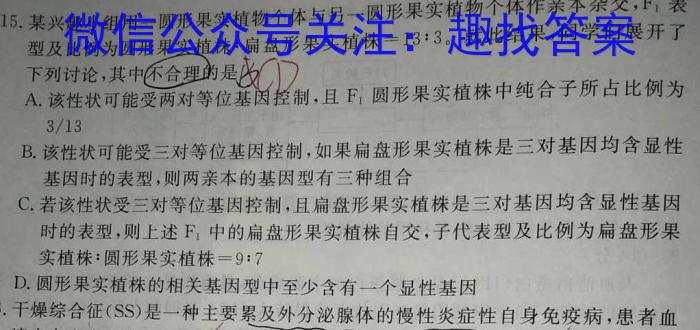 15.某兴趣小组用一圆形果实植物个体与另一圆形果实植物个体作亲本杂交,F₁ 表
型及比例为圆形果实植株:扁盘形果实植株=13:3。 展开了
微信公众号关注:趣找答案
下列讨论,其中不合理的是
A. 该性状可能受两对等位基因控制,且 F₁ 圆形果实植株中纯合子所占比例为
3/13
B. 该性状可能受三对等位基因控制,如果扁盘形果实植株是三对基因均含显性
基因时的表型,则两亲本的基因型有三种组合
C. 若该性状受三对等位基因控制,且扁盘形果实植株是三对基因均含显性基因
时的表型,则上述 F₁ 中的扁盘形果实植株自交,子代表型及比例为扁盘形果
实植株:圆形果实植株=9:7
D. 圆形果实植株的相关基因型中至少含有一个显性基因
.干燥综合征(SS)是一种主要累及外分泌腺体的慢性炎症性自身免疫病,患者血